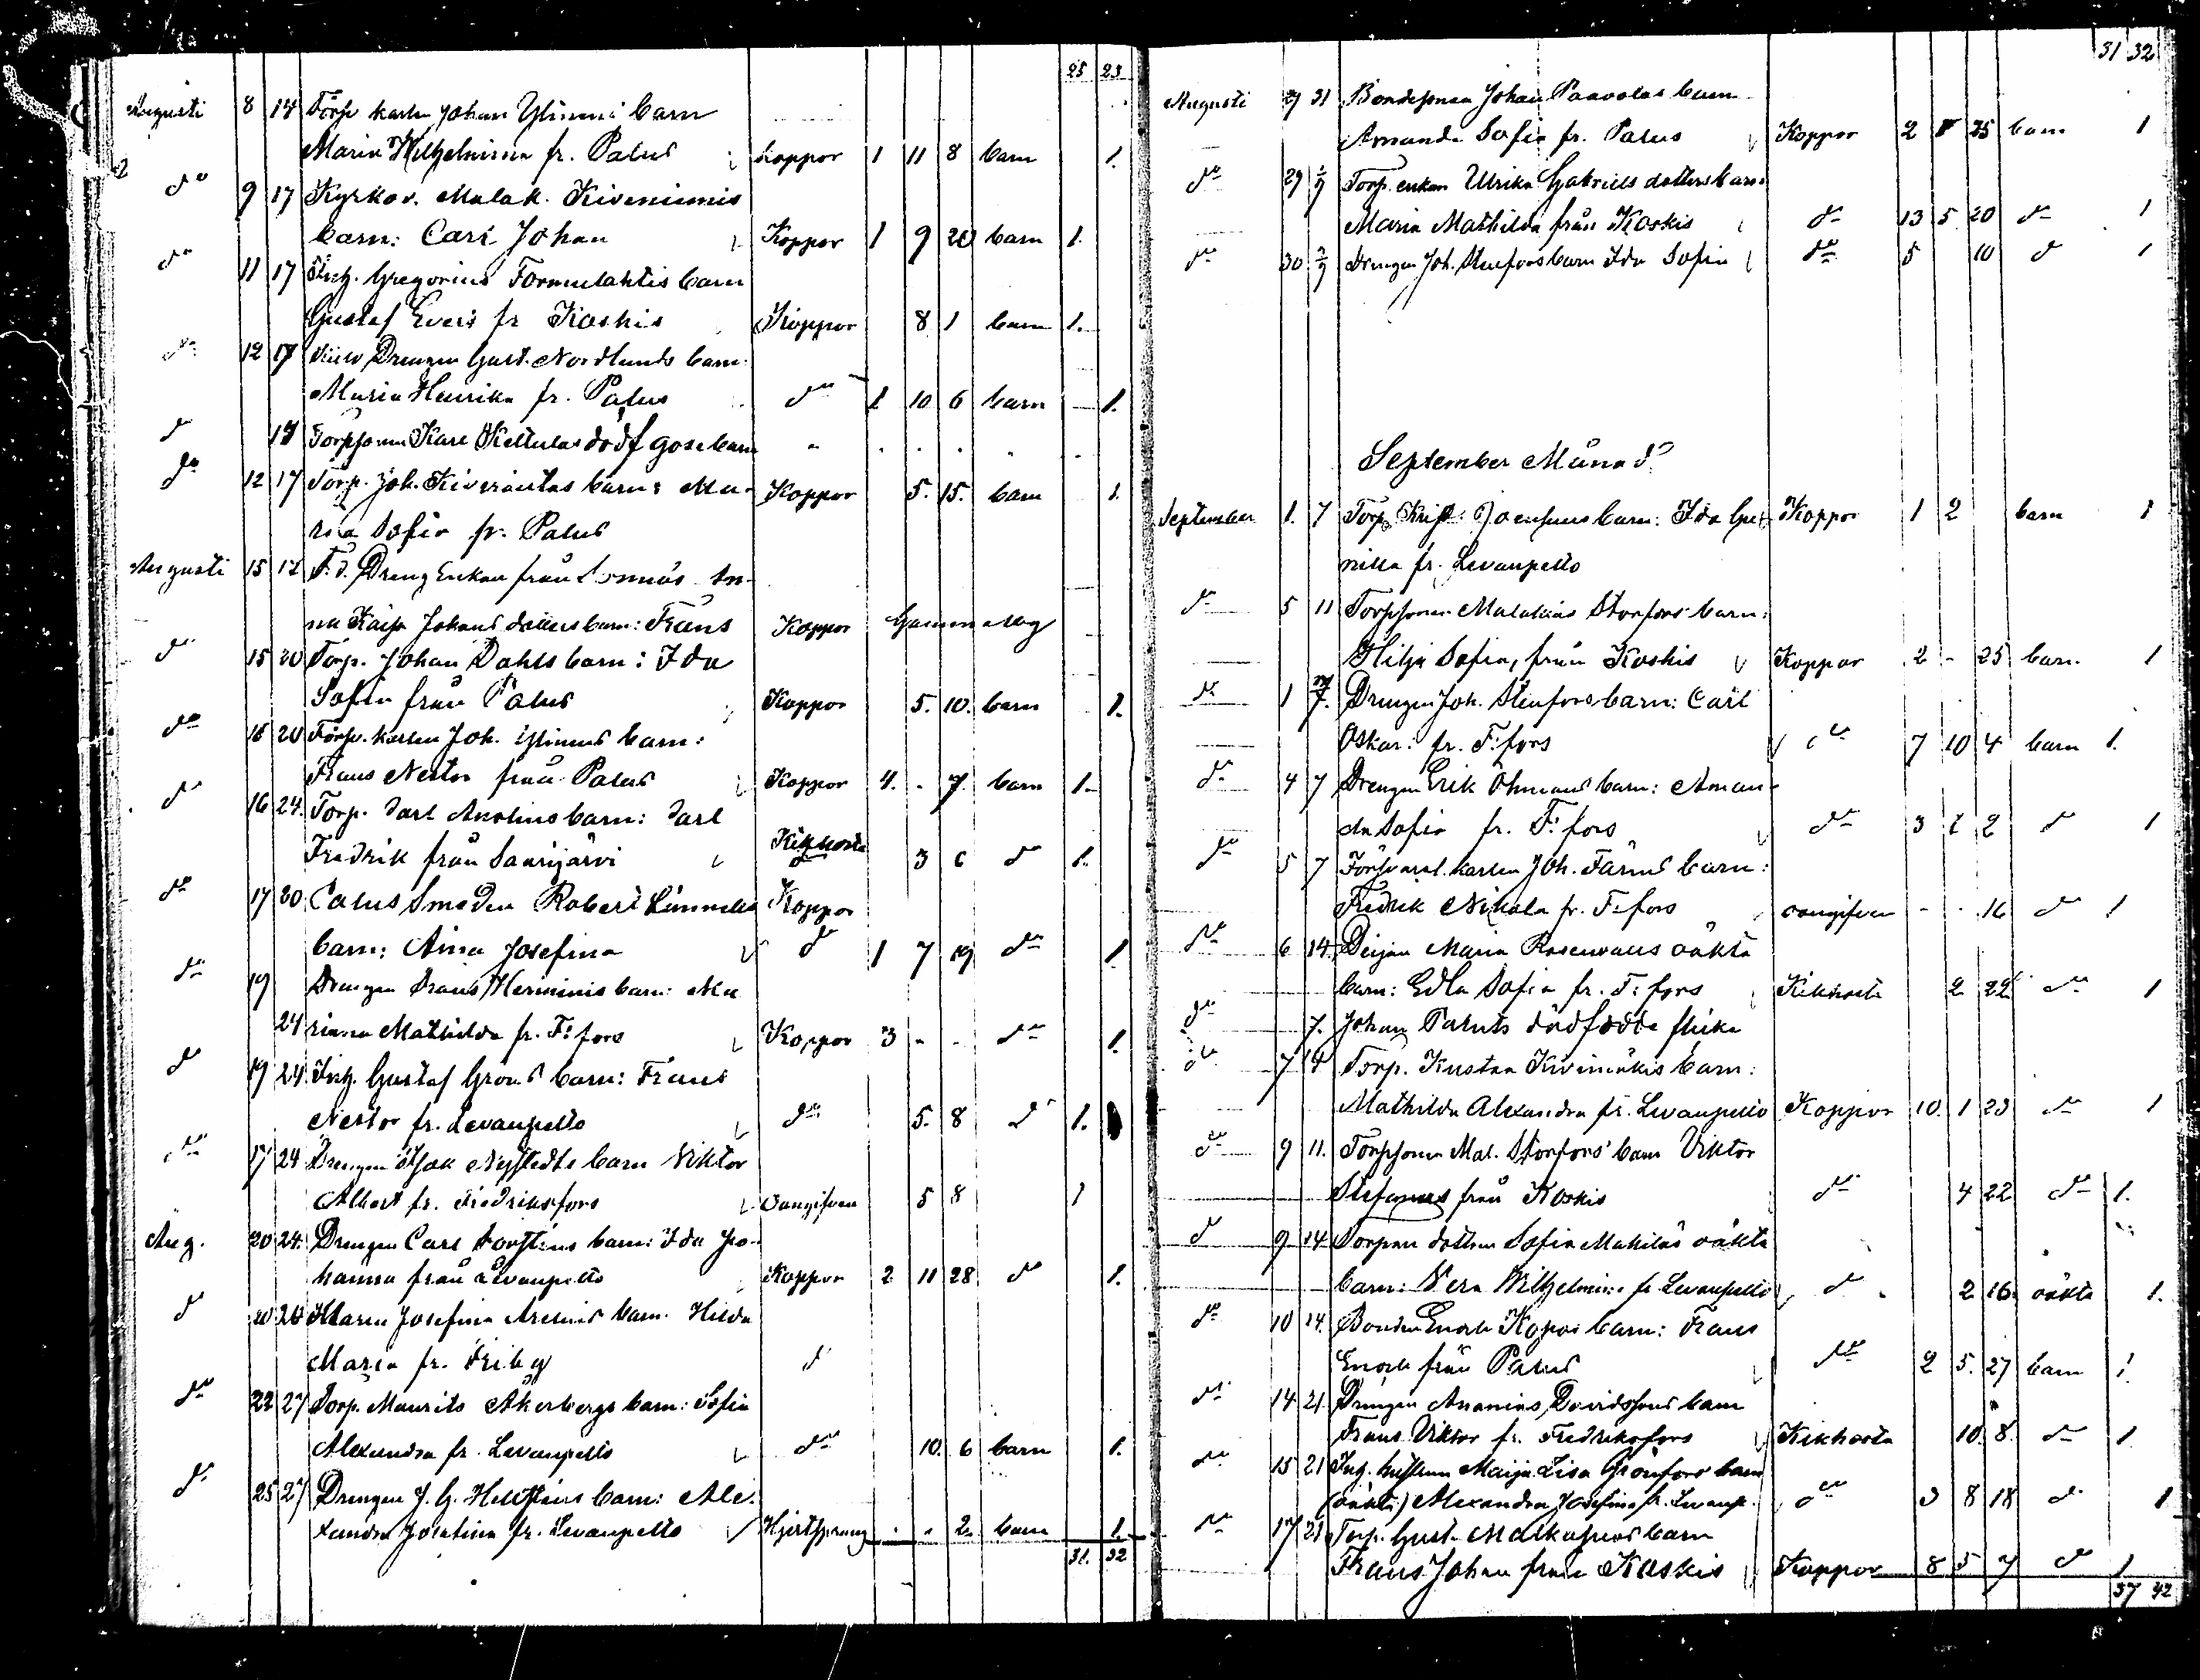 25 23
Augusti 8 14 Försv karlen Johan Ylinens barn
Maria Wilhelmina fr. Palus Koppor 1 11 8 barn 1.
do 9 17 Kyrkov. Malak. Kiveniemis
barn: Carl Johan Koppor 1 9 20 barn 1.
do 11 17 Inh. Gregorius Tormulahtis barn
Gustaf Evert fr Koskis Koppor 8 1 barn 1.
do 12 17 Drengen Gust. Nordlunds barn:
Maria Henrika fr. Palus do 1 10 6 barn 1.
do 17 Torpsonen Karl Kettulas dödf gosse barn
do 12 17 Torp. Joh. Kivirantas barn: Ma- Koppor 5. 15. barn 1.
ria Sofia fr. Palus
Augusti 15 17 F.d. Dreng Enkan från An-
na Kaisa Johans dotters barn: Frans Koppor
do 15 20 Torp. Johan Dahls barn: Ida
Sofia från Palus Koppor 5. 10. barn 1.
do 16 20 Försv. karlen Joh. Ylinens barn:
Frans Nestor från Palus Koppor 4. - 7. barn 1.
do 16 24. Torp. Karl Anolins barn: Karl
Fredrik från Saarijärvi Kikhosta 3 6 do 1.
do 17 20 Palus Smeden Robert Koppor
barn: Aina Josefina do 1 7 19 do 1.
do 19 Drengen Frans Herminis barn: Ma
24 rianna Mathilda fr. F:fors Koppor 3 - - do 1.
do 19 24. Inh. Gustaf Gröns barn: Frans
Nestor fr. Levanpelto do 5. 8 do 1.
do 17 24 Drengen Isak Nystedts barn Viktor
Albert fr. Fredriksfors Oangifven 5 8 1
Aug. 20 24. Drengen Carl barn: Ida Jo-
hanna från Levanpelto Koppor 2 11 28 do 1.
do 20 26 Maria Josefina barn. Hilda
Maria fr. Friby do
do 22 27 Torp. Maurits Åkerbergs barn: Sofia
Alexandra fr. Levanpelto do 10. 6 barn 1.
do 25 27 Drengen J. G. barn: Ale-
xandra Josefina fr. Levanpelto Hjertsprång - - 2. barn 1.
31. 32
31 32
Augusti 27 31 Bondesonen Johan Paavolas barn
Amanda Sofia fr. Palus Koppor 2 25 barn 1
do 29 Torp. enkan Ulrika Gabriels dotters barn:
Maria Mathilda från Koskis do 13 5 20 do 1
do 30 Drengen Joh. Stenfors barn Ida Sofia do 5 10 do 1
September Månad
September 1. 7 Torp. Krist. barn: Ida Gu- Koppor 1 2 barn 1
nilla fr. Levanpelto
do 5 11 Torpsonen Malakias Storfors barn:
Hilja Sofia, från Koskis Koppor 2 - 25 barn. 1
do 1 7. Drengen Joh. Stenfors barn: Carl
Oskar: fr. F:fors do 7 10 4 barn 1.
do 4 7 Drengen Erik Öhmans barn: Aman-
da Sofia fr. F:fors do 3 2 2 do 1
do 5 7 Försvarsl. karlen Joh. Färms barn:
Fredrik Nikola fr. F:fors oangifven - - 16 do 1
do 6 14. Pigan Maria Rosenvalls oäkta
barn: Edla Sofia fr. F:fors Kikhosta 2 22 do 1
do 7. Johan Paluts dödfödda flicka
do 7 14 Torp. Kustaa Kivimäkis barn:
Mathilda Alexandra fr. Levanpelto Koppor 10. 1 23 do 1
do 9 11. Torpsonen Mal. Storfors' barn Viktor
Stefanus från Koskis do 4 22 do 1.
do 9 14 Torpare dottern Sofia Makiläs oäkta
barn: Vera Wilhelmina fr Levanpelto do 2 16. oäkta 1.
do 10 14. Bonden Enok Kopos barn: Frans
Enok från Palus do 2 5. 27 barn 1.
do 14 21. Drengen Ananias Davidssons barn
Frans Viktor fr. Fredriksfors Kikhosta 10. 8. do 1
do 15 21 Inh. Maija Lisa Grönfors barn
(oäkta) Alexandra Josefina fr. Levanp. do 3 8 18 do 1
do 17 21 Torp. Gust. barn
Frans Johan från Koskis Koppor 8 5 7 do 1
37 42